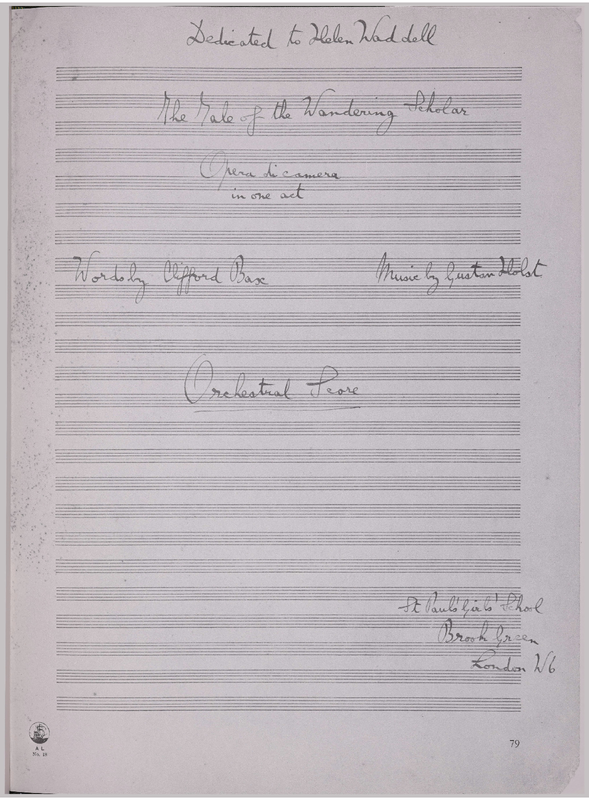 Dedicated to Helen Waddell
The Tale of the Wandering Scholar
Opera di camera
in one act
Words by Clifford Bax
Music by Gustav Holst
Orchestral Score
St Paul's Girls' School
Brook Green
London W6
A L
79